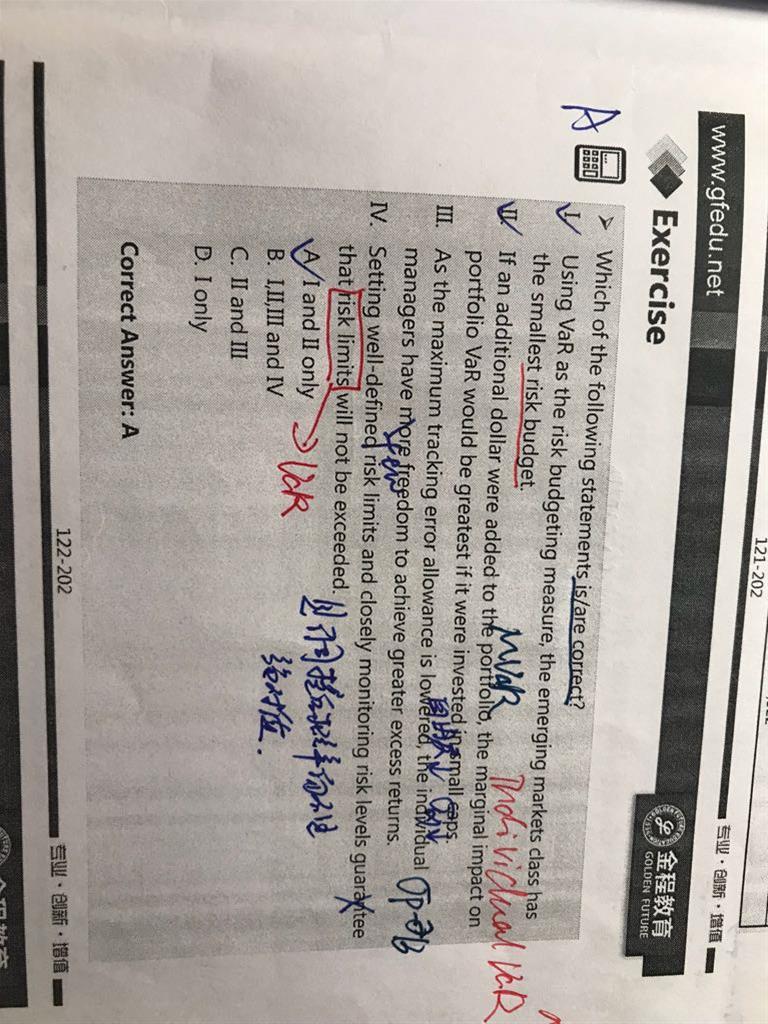 121-202
www.gfedu.net
专业·创新·增值
Exercise
金程教育
GOLDEN FUTURE
A
➢ Which of the following statements is/are correct?
I. Using VaR as the risk budgeting measure, the emerging markets class has
the smallest risk budget.
Individual VaR
MVaR
II. If an additional dollar were added to the portfolio, the marginal impact on
portfolio VaR would be greatest if it were invested in small caps.
III. As the maximum tracking error allowance is lowered, the individual
managers have more freedom to achieve greater excess returns.
few
IV. Setting well-defined risk limits and closely monitoring risk levels guarantee
that risk limits will not be exceeded.
VaR
A. I and II only
B. I,II,III and IV
C. II and III
D. I only
绝对值.
Correct Answer: A
122-202
专业·创新·增值
金程教育